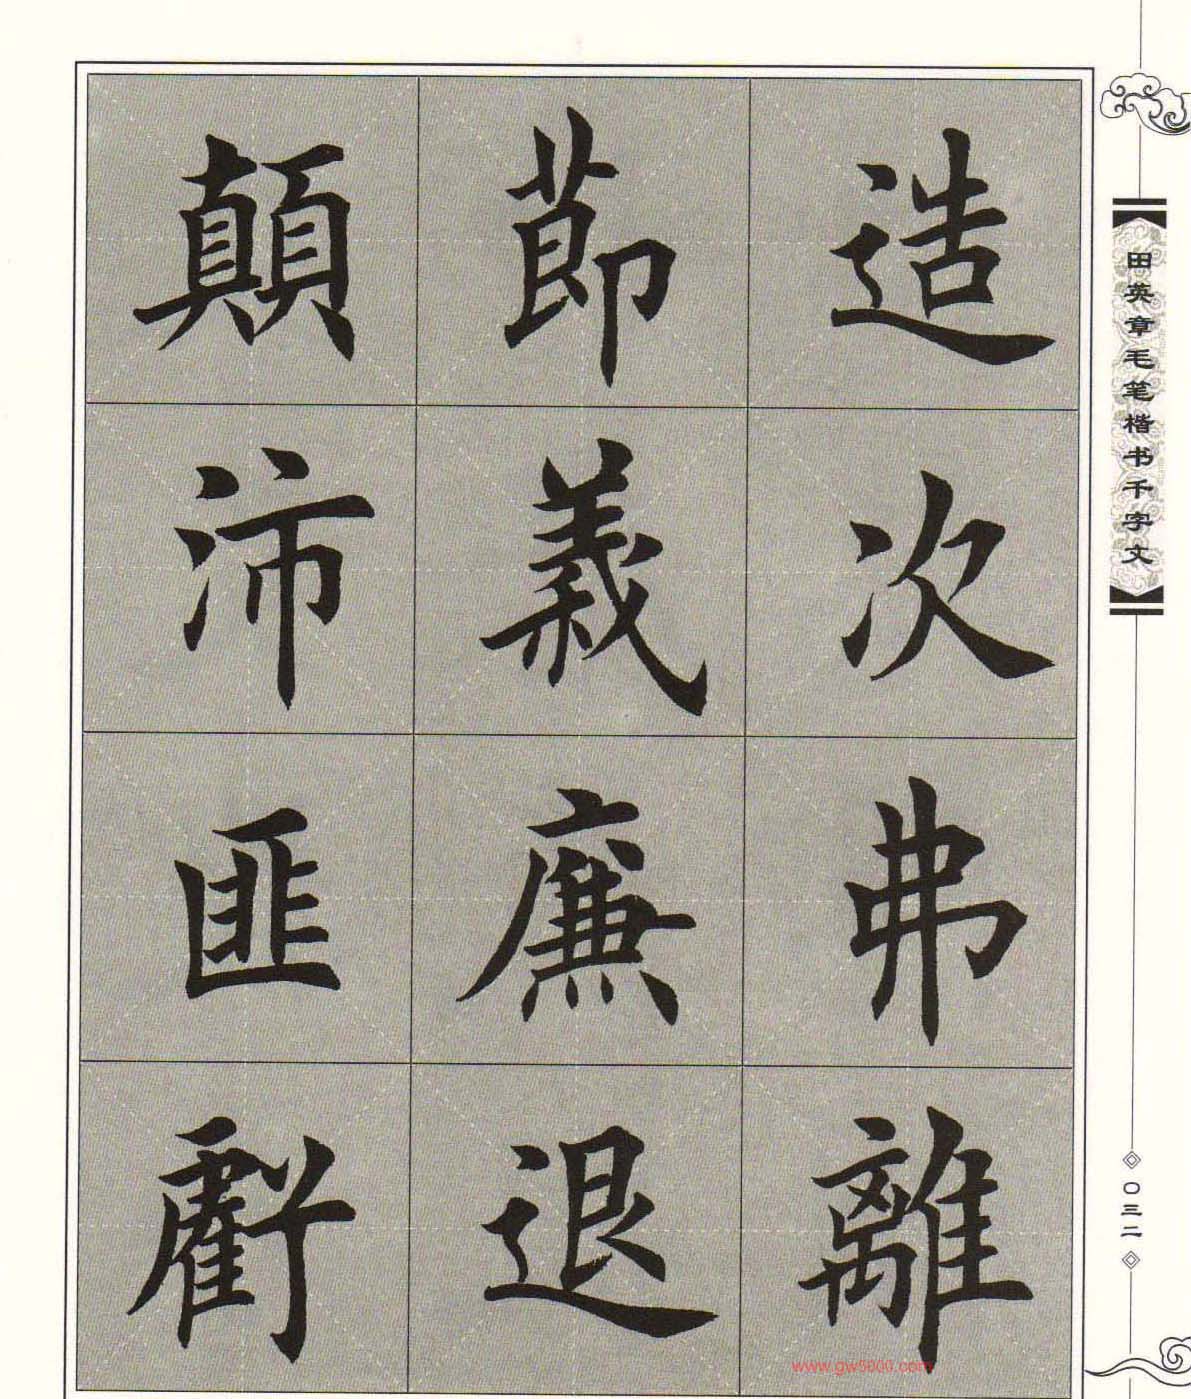 造次弗離
節義廉退
顛沛匪虧
田英章毛笔楷书千字文
〇三二
www.gw5000.com